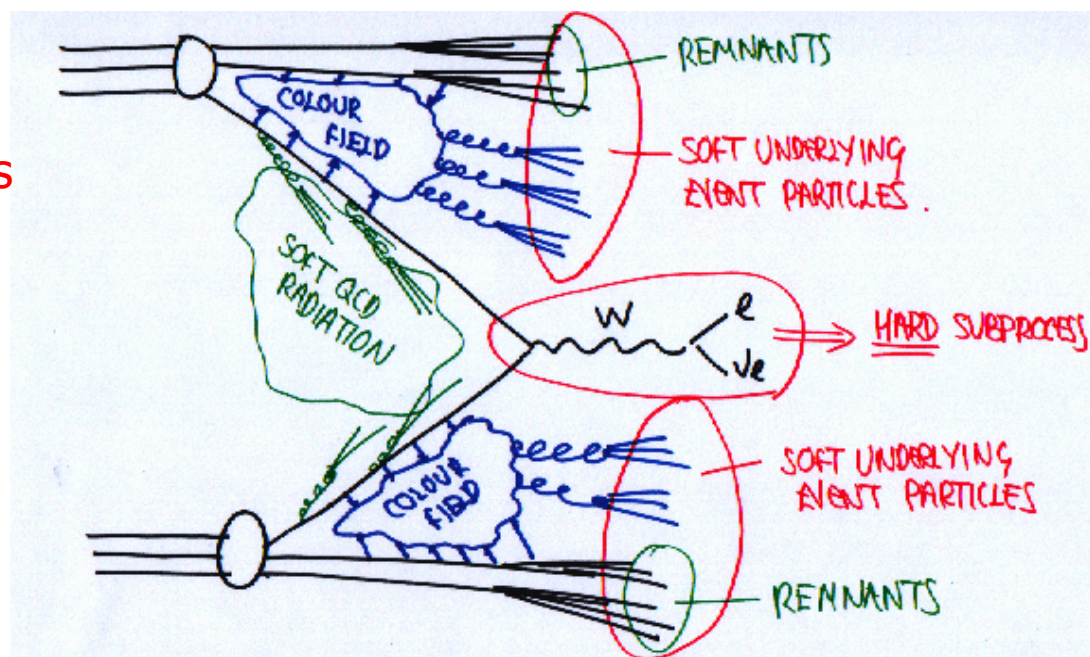 REMNANTS
COLOUR
FIELD
s
SOFT UNDERLYING
EVENT PARTICLES.
SOFT QCD
RADIATION
W
e
νe
HARD SUBPROCESS
COLOUR
FIELD
SOFT UNDERLYING
EVENT PARTICLES
REMNANTS